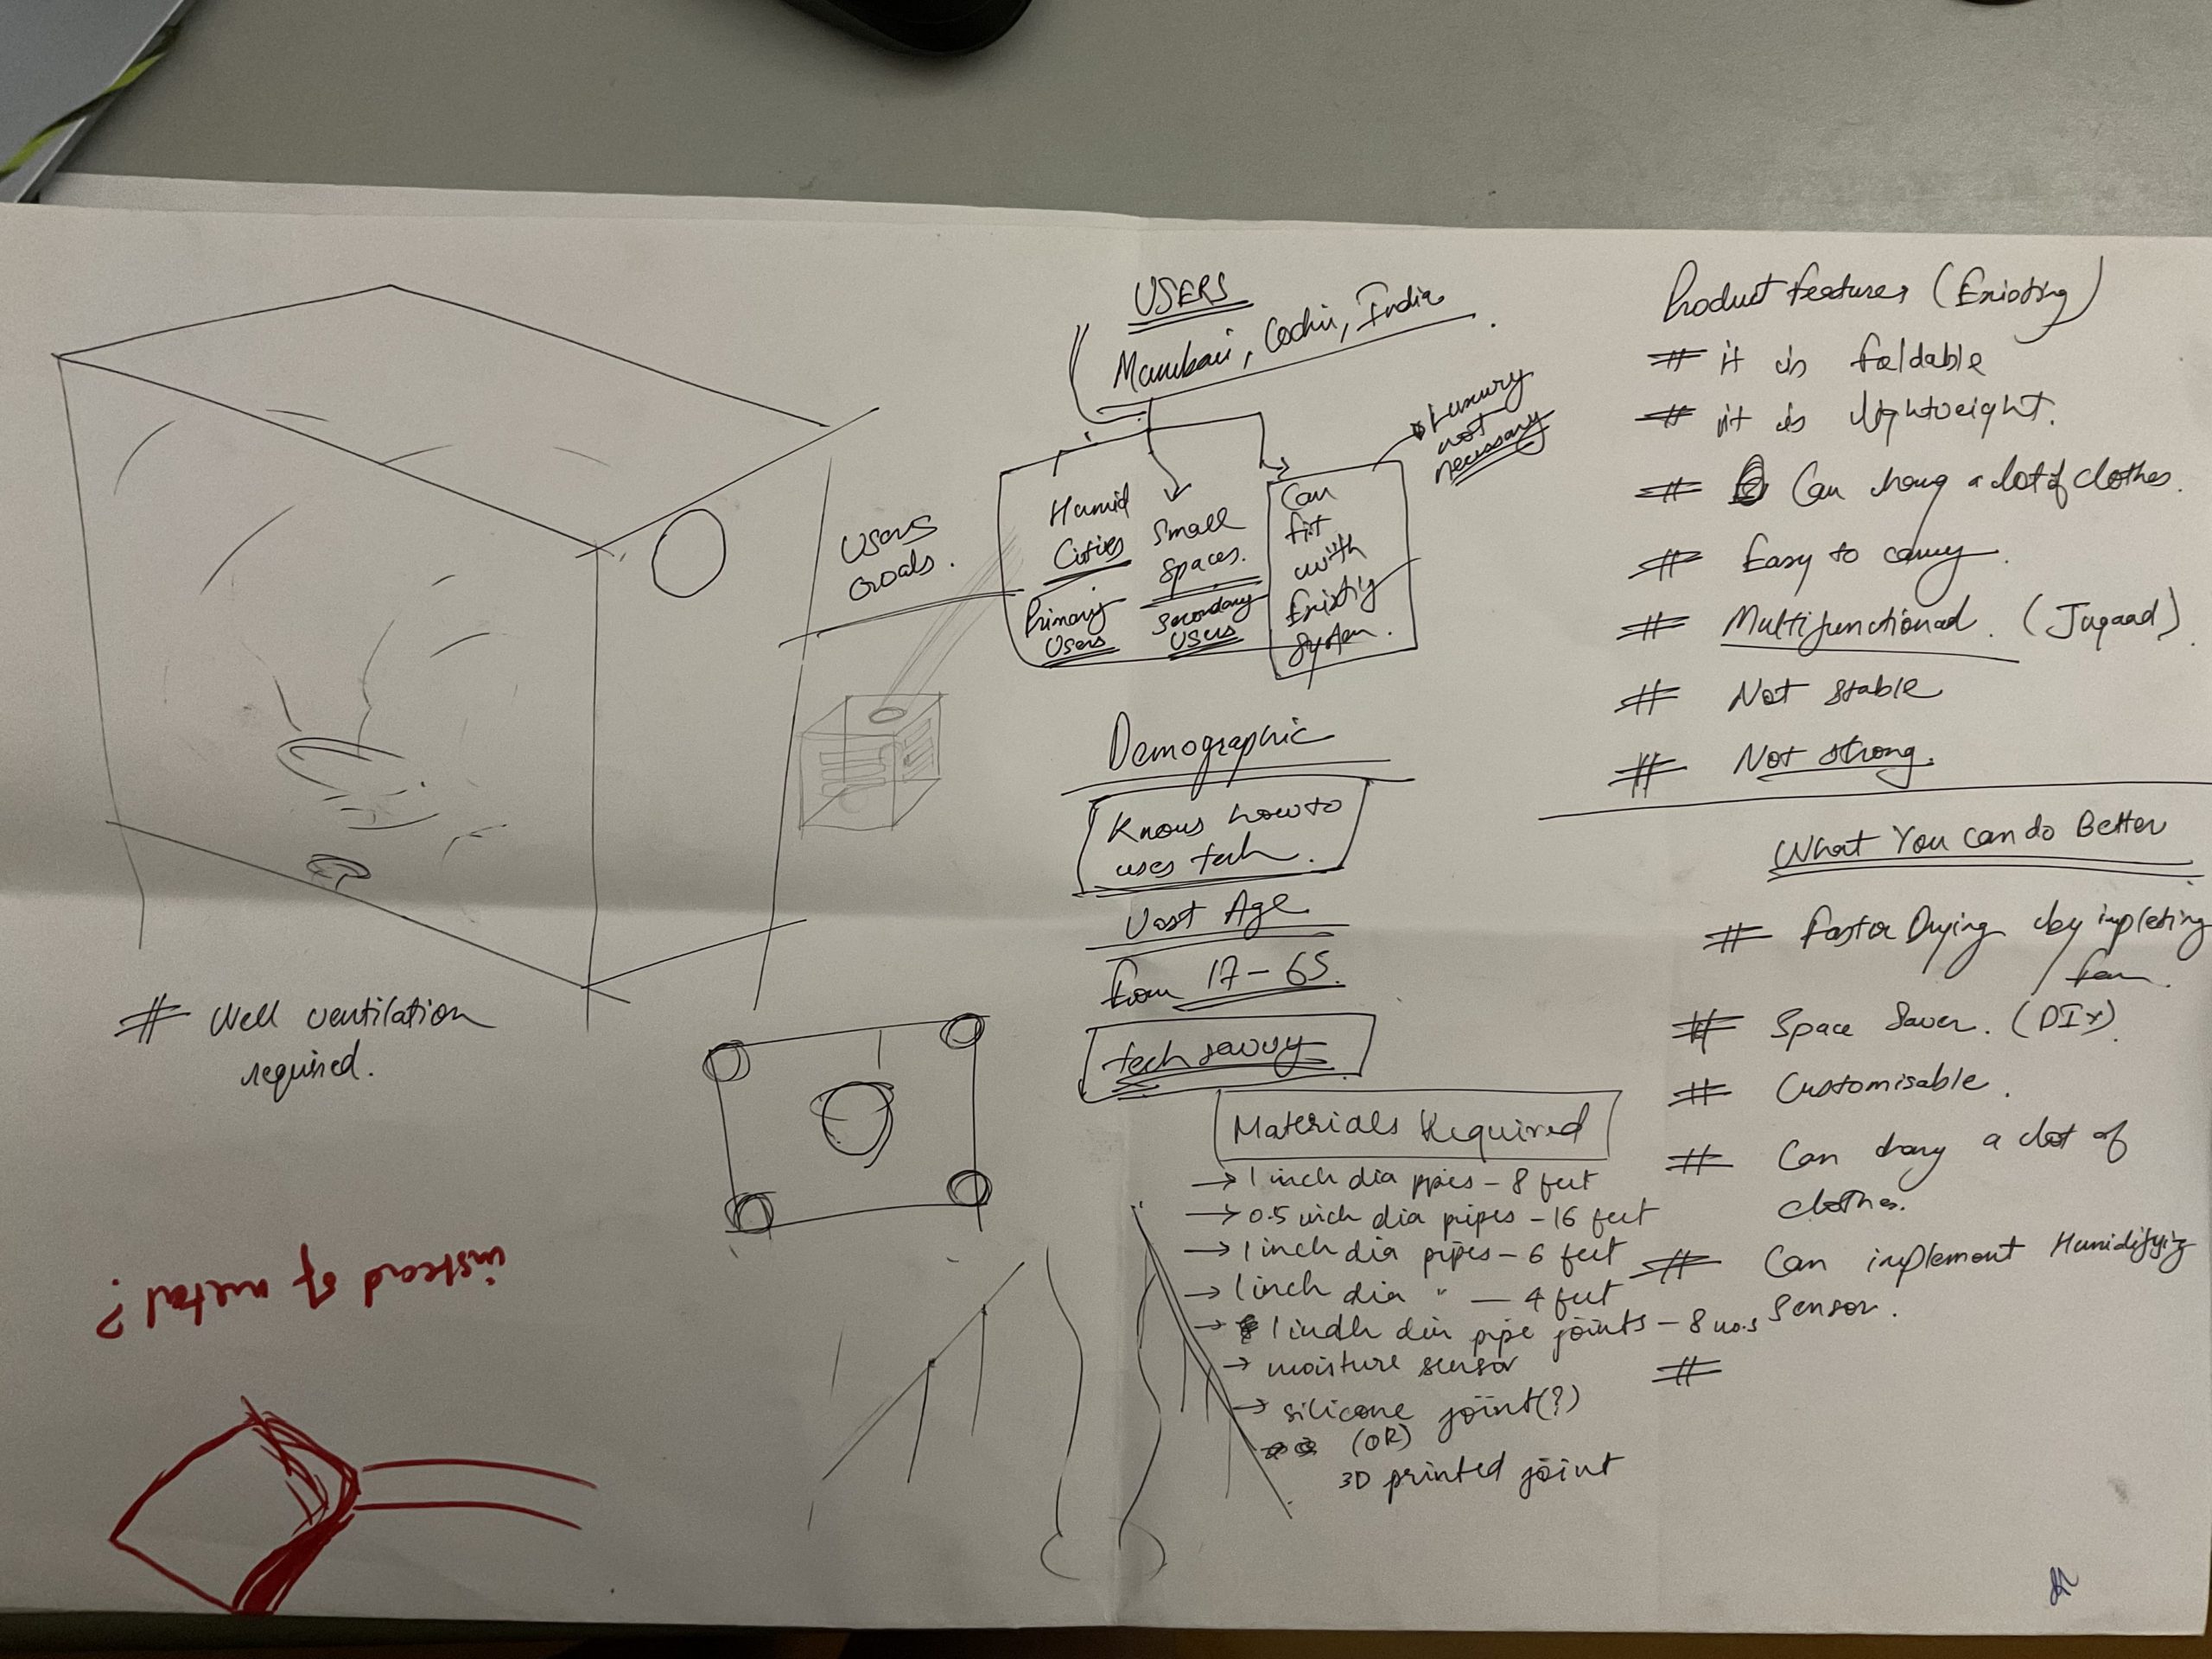 USERS
Mumbai, Cochin, India.
Luxury
not
necessary
Users
Goals.
Humid
Cities
Primary
Users
Small
Spaces.
Secondary
Users
Can
fit
with
Existig
System.
Demographic
Knows how to
uses tech.
Vast Age
from 17-65.
tech savvy
# Well ventilation
required.
instead of metal?
Materials Required
→ 1 inch dia ppies - 8 feet
→ 0.5 inch dia pipes - 16 feet
→ 1 inch dia pipes - 6 feet
→ 1 inch dia " - 4 feet
→ 1 indh dia pipe joints - 8 no.s
→ moisture sensor
→ silicone joint(?)
(OR)
3D printed joint
Product features (Existing)
# it is foldable
# it is lightweight.
# Can hang a lot of clothes.
# Easy to carry.
# Multifunctional. (Jugaad)
# Not stable
# Not strong.
What You can do Better
# Faster Drying by
fan.
# Space Saver. (DIY)
# Customisable.
# Can hang a lot of
clothes.
# Can implement Humidifying
Sensor.
#